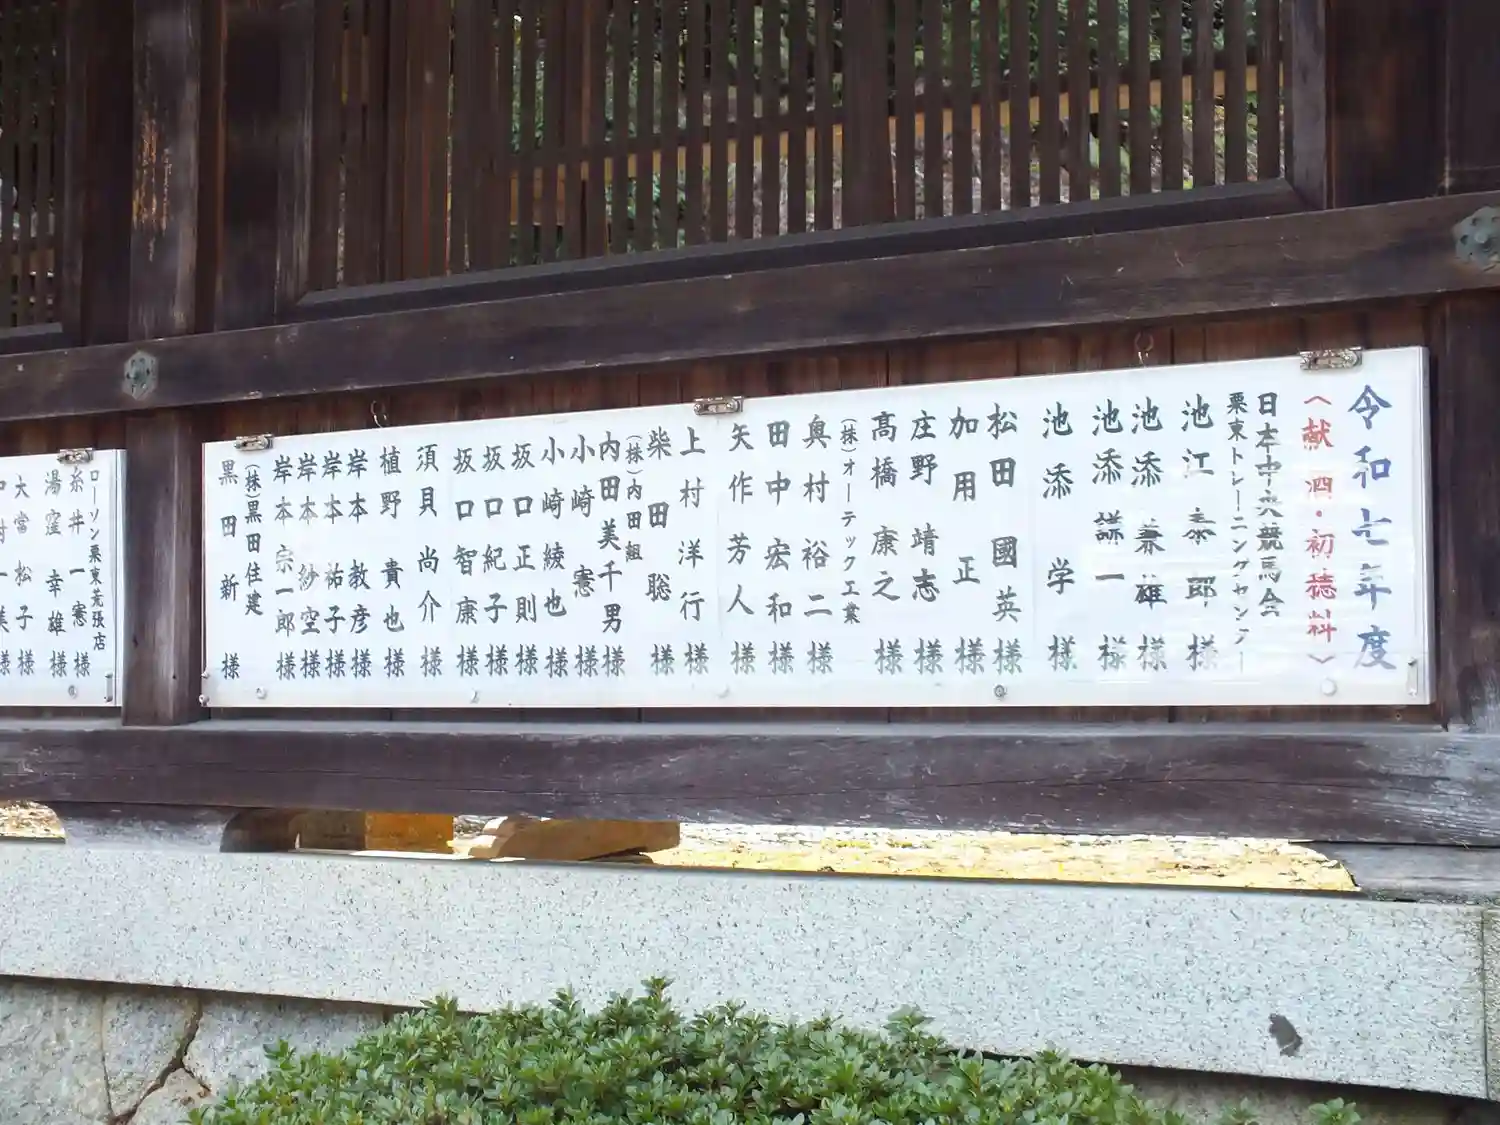 令和七年度
〈献酒・初穂料〉
日本中央競馬会
栗東トレーニングセンター
池江泰郎様
池添兼雄様
池添謙一様
池添学様
松田國英様
加用正様
庄野靖志様
髙橋康之様
(株)オーテック工業
奥村裕二様
田中宏和様
矢作芳人様
上村洋行様
柴田聡様
(株)内田組
内田美千男様
小崎憲様
小崎綾也様
坂口正則様
坂口紀子様
坂口智康様
須貝尚介様
植野貴也様
岸本教彦様
岸本祐子様
岸本紗空様
岸本宗一郎様
(株)黒田住建
黒田新様
ローソン栗東荒張店
糸井一憲様
湯窪幸雄様
大當松子様